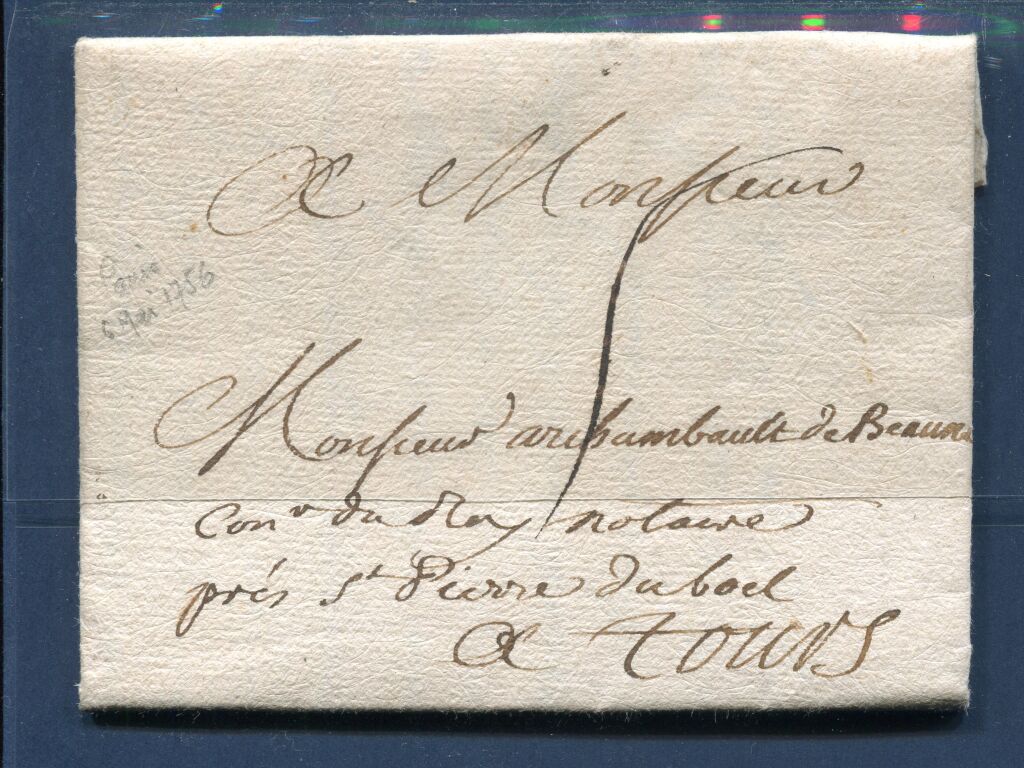 A Monsieur
Paris
6 Mai 1756
Monsieur archambault de Beaune
Con.er du Roy notaire
près St Pierre du boel
A Tours